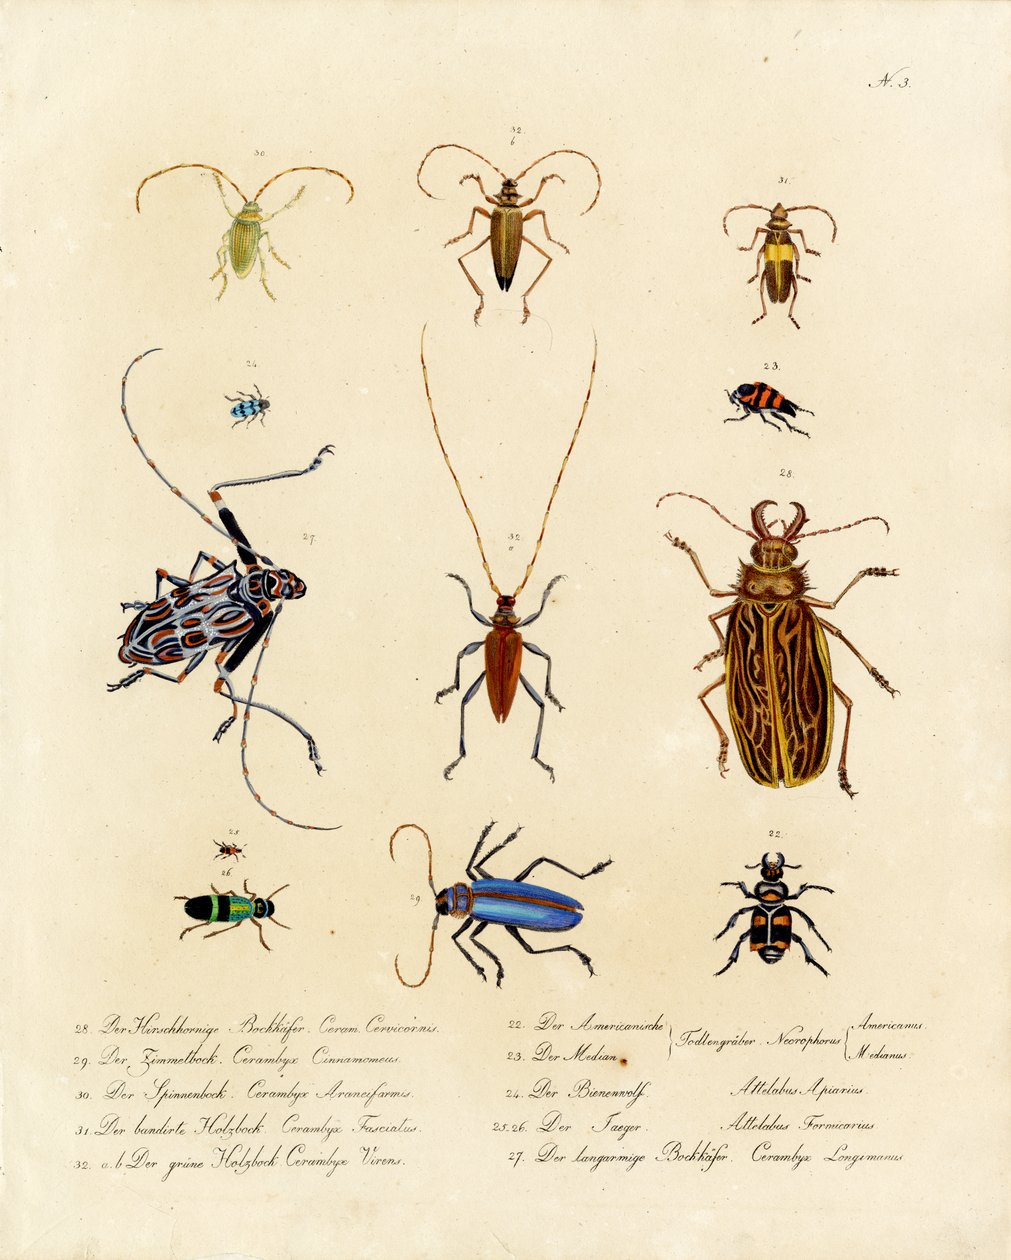 N. 3.
32.
b
30.
31.
24
23.
28.
27.
32
a
25
26.
29
22.
28. Der Hirschhornige Bockkäfer. Ceram. Cervicornis.
29. Der Zimmetbock. Cerambyx Cinnamomeus.
30. Der Spinnenbock. Cerambyx Araneiformis.
31. Der bandirte Holzbock. Cerambyx Fasciatus.
32. a. b Der grüne Holzbock Cerambyx Virens.
22. Der Americanische } Todlengräber. Necrophorus { Americanus.
23. Der Median { Medianus.
24. Der Bienenwolf. Attelabus Apiarius.
25.26. Der Jaeger. Attelabus Formicarius
27. Der langarmige Bockkäfer. Cerambyx Longimanus